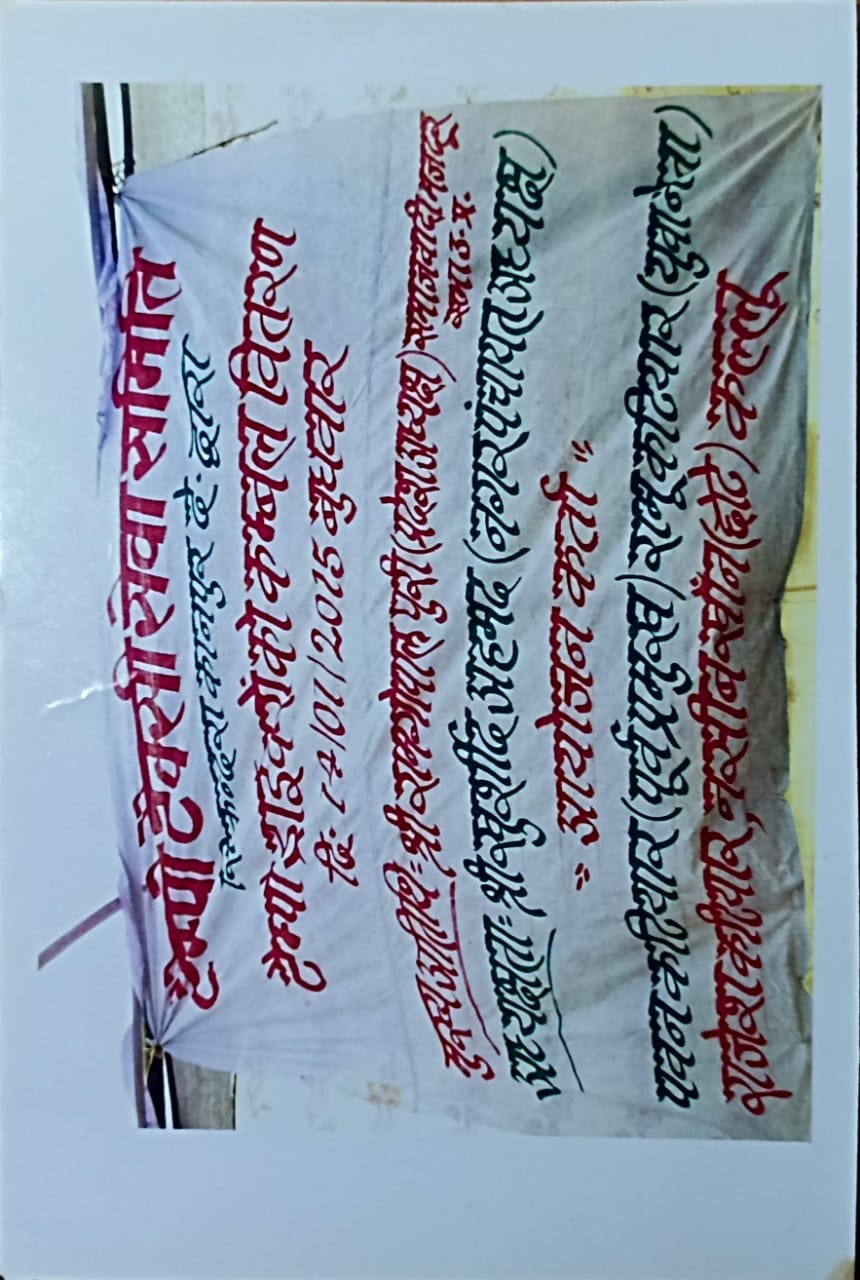 टैम्पो टैक्सी सेवा समिति
सिकन्दरा कानपुर दे॰ द्वारा
टैम्पो ड्राइवरों को कम्बल वितरण
दि॰ 14/01/2015 बुधवार
मुख्य अतिथि = श्री रामगोपाल पुरी (प्रदेश अध्यक्ष) समाजवादी मजदूर
सभा उ॰ प्र॰
अध्यक्षता = श्री खुर्शीद अहमद (नगर पंचायत अध्यक्ष)
"आयोजन कर्ता"
पवन कटियार (पूर्व प्रमुख) रामू कटियार (युवा नेता)
राजेश कटियार, नसीब खाँन (छोटे) कल्लू